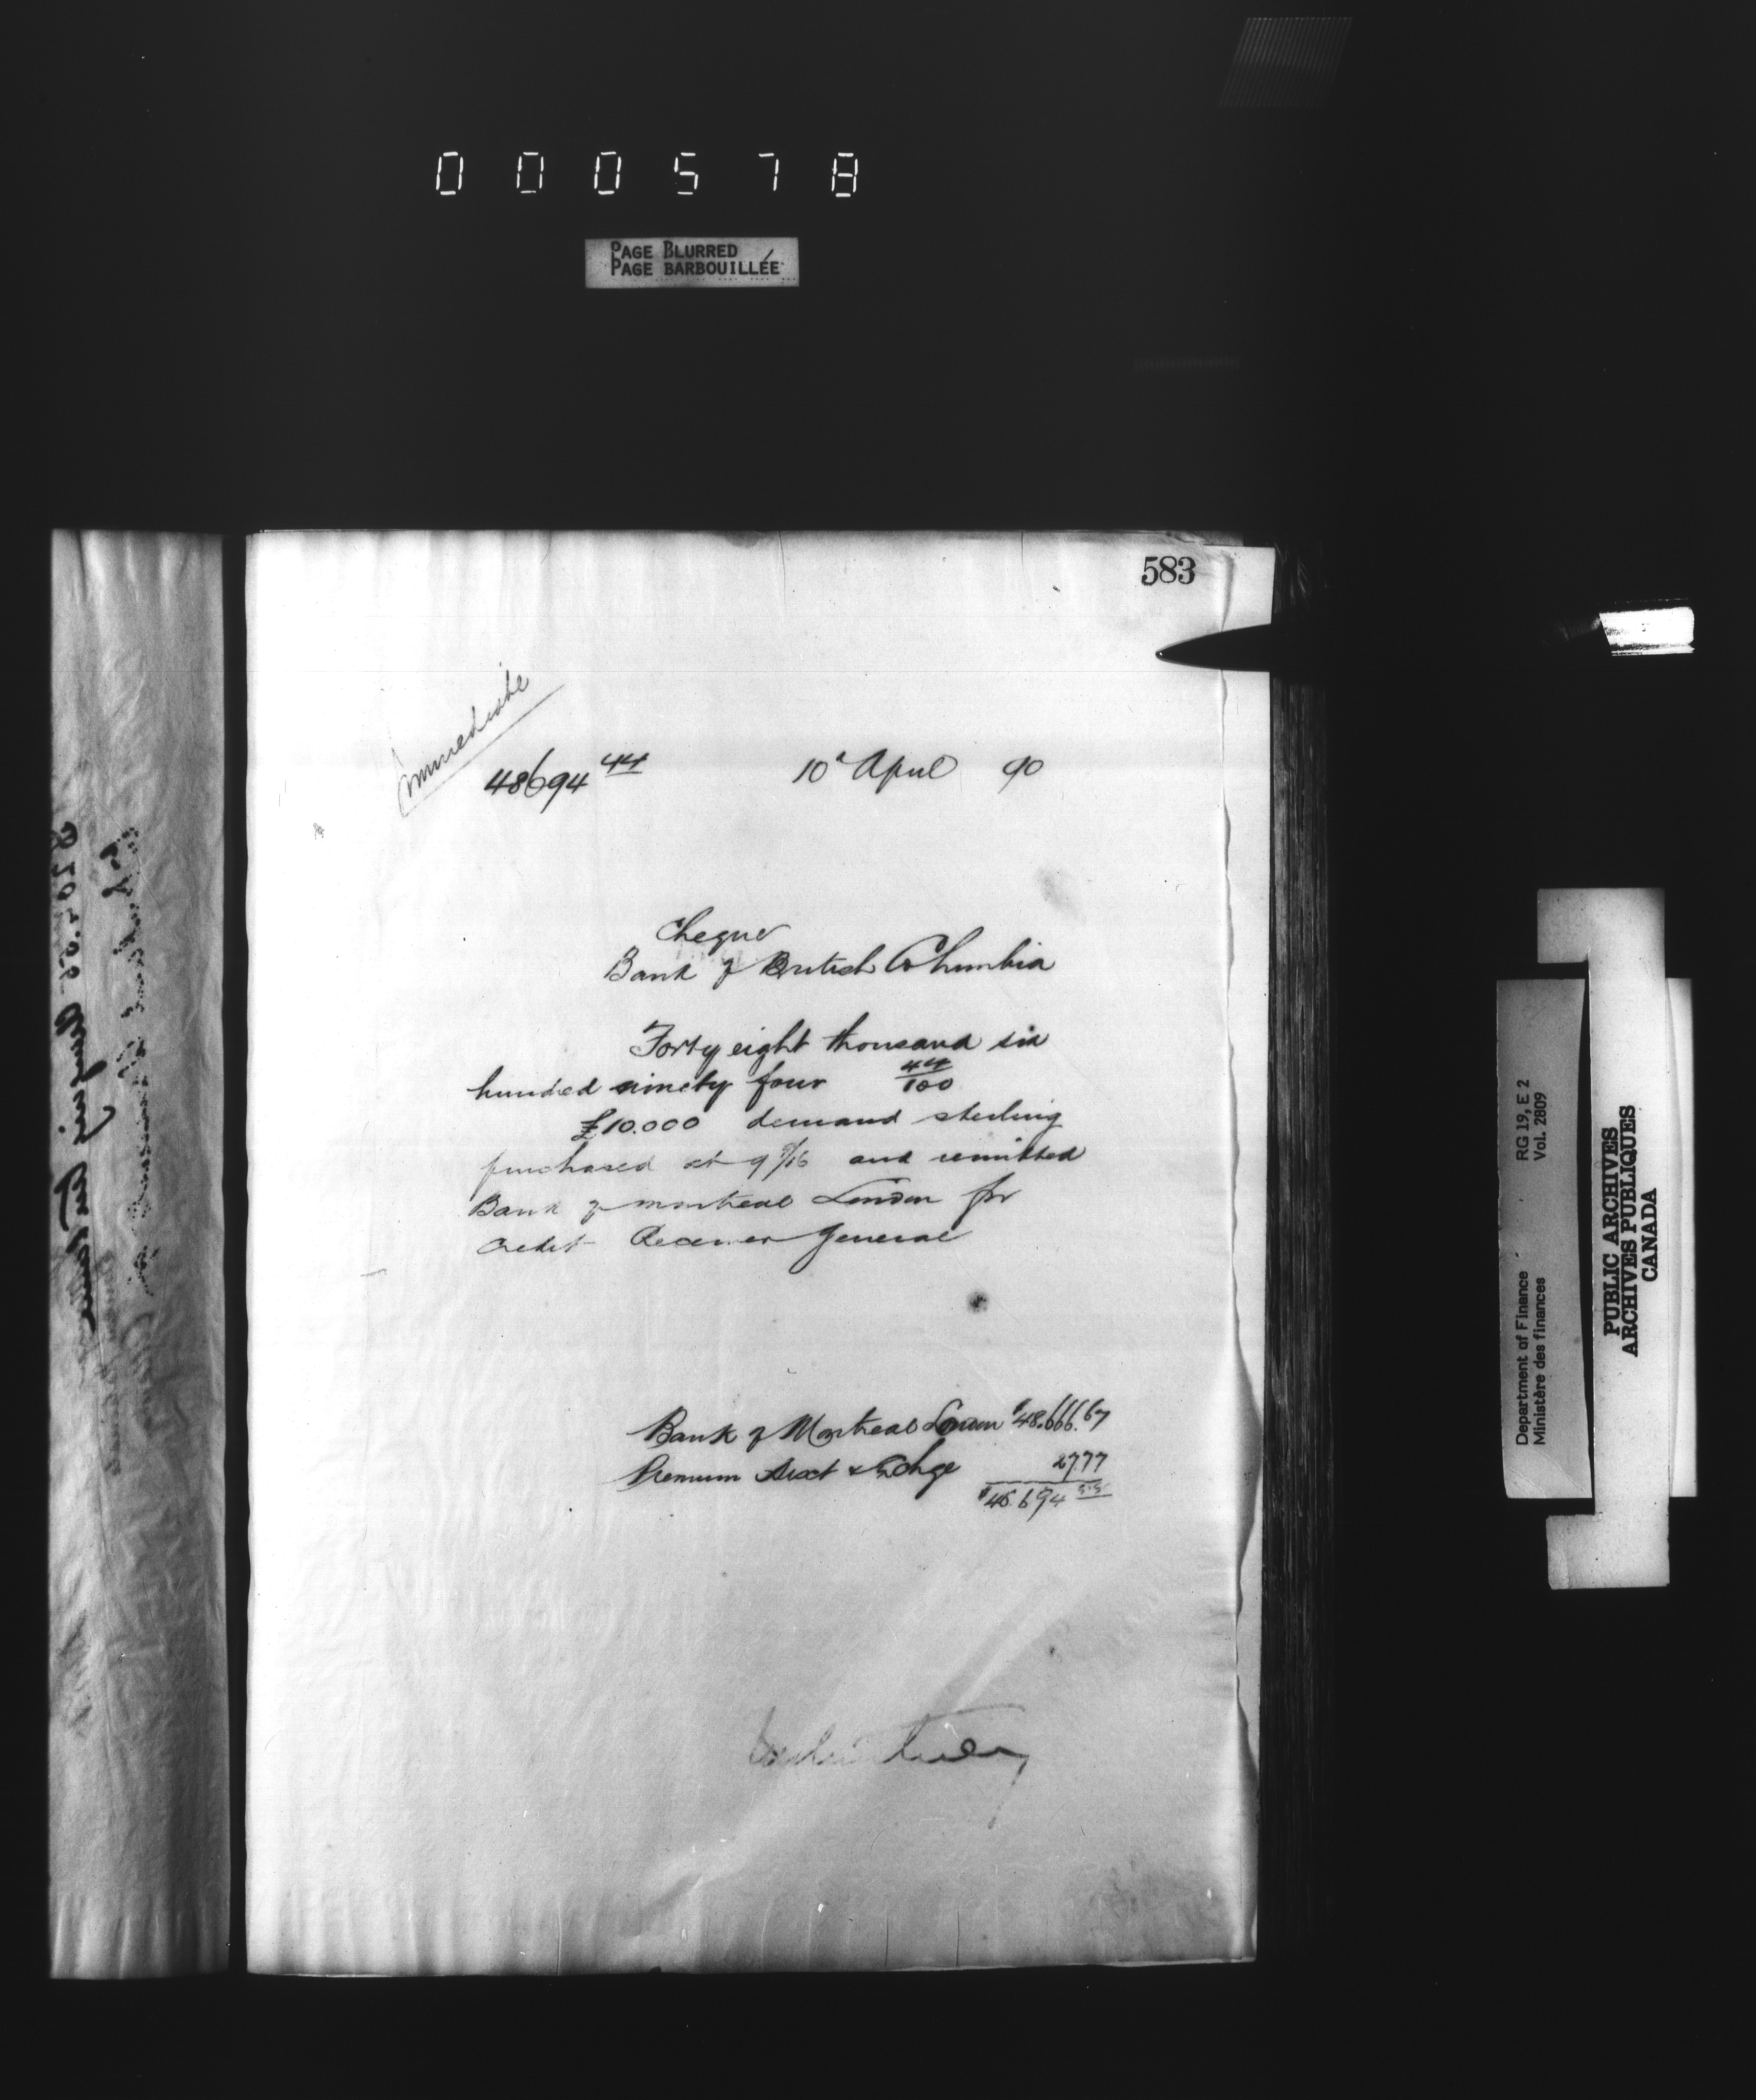 000578
PAGE BLURRED
PAGE BARBOUILLÉE
583
Immediate
48694 44
10th April 90
Cheque
Bank of British Columbia
Forty eight thousand six
hundred ninety four 44/100
£10.000 demand sterling
purchased at 9 9/16 and remitted
Bank of Montreal London for
Credit Receiver General
Bank of Montreal London $48.666.67
Premium Disct & Exchge 27.77
$48.694 44
Department of Finance RG 19, E 2
Ministère des finances Vol. 2809
PUBLIC ARCHIVES
ARCHIVES PUBLIQUES
CANADA